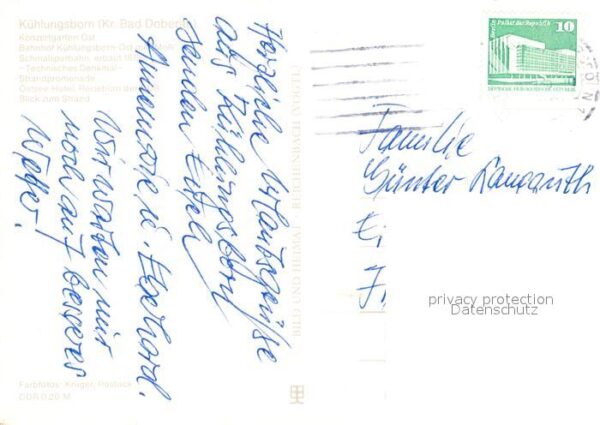 Kühlungsborn (Kr. Bad Doberan)
Konzertgarten Ost
Bahnhof Kühlungsborn-Ost der
Schmalspurbahn, erbaut
– Technisches Denkmal –
Strandpromenade
Ostsee Hotel
Blick zum Strand
Herzliche Urlaubsgrüße
aus Kühlungsborn
senden Euch
Annemarie u. Eberhard.
Wir warten nur
noch auf besseres
Wetter!
Farbfotos: Krüger, Rostock
DDR 0,20 M
BILD UND HEIMAT REICHENBACH
Berlin, Palast der Republik
10
Familie
Günter
privacy protection
Datenschutz